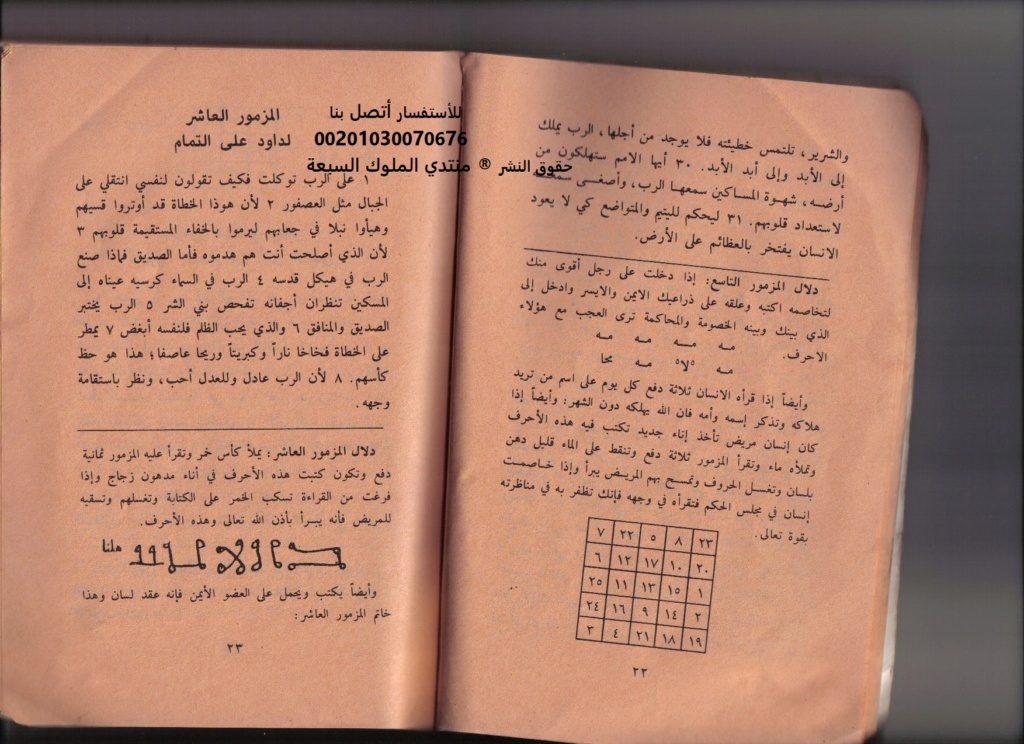 والشرير، تلتمس خطيئته فلا يوجد من أجلها، الرب يملك
إلى الأبد وإلى أبد الأبد. ٣٠ أيها الامم ستهلكون من
أرضه، شهوة المساكين سمعها الرب، وأصغى سمعك
لاستعداد قلوبهم. ٣١ ليحكم لليتيم والمتواضع كي لا يعود
الانسان يفتخر بالعظائم على الأرض.
دلال المزمور التاسع: إذا دخلت على رجل أقوى منك
لتخاصمه اكتبه وعلقه على ذراعيك الايمن والايسر وادخل إلى
الذي بينك وبينه الخصومة والمحاكمة ترى العجب مع هؤلاء
الاحرف.
مه مسه مه مه
مه ٥لا٥ مه محا
وأيضاً إذا قرأه الانسان ثلاثة دفع كل يوم على اسم من تريد
هلاكه وتذكر إسمه وأمه فان الله يهلكه دون الشهر: وأيضاً إذا
كان إنسان مريض تأخذ إناء جديد تكتب فيه هذه الأحرف
وتملأه ماء وتقرأ المزمور ثلاثة دفع وتنقط على الماء قليل دهن
بلسان وتغسل الحروف وتمسح بهم المريض يبرأ وإذا خاصمت
إنسان في مجلس الحكم فتقرأه في وجهه فإنك تظفر به في مناظرته
بقوة تعالى.
٢٣ ٨ ٥ ٢٢ ٧
٢٠ ١٠ ١٧ ١٢ ٦
١ ١٥ ١٣ ١١ ٢٥
٢ ١٤ ٩ ١٦ ٢٤
١٩ ١٨ ٢١ ٤ ٣
٢٢
للأستفسار أتصل بنا
00201030070676
حقوق النشر ® منتدي الملوك السبعة
المزمور العاشر
لداود على التمام
١ على الرب توكلت فكيف تقولون لنفسي انتقلي على
الجبال مثل العصفور ٢ لأن هوذا الخطاة قد أوتروا قسيهم
وهيأوا نبلا في جعابهم ليرموا بالخفاء المستقيمة قلوبهم ٣
لأن الذي أصلحت أنت هم هدموه فأما الصديق فماذا صنع
الرب في هيكل قدسه ٤ الرب في السماء كرسيه عيناه إلى
المسكين تنظران أجفانه تفحص بني الشر ٥ الرب يختبر
الصديق والمنافق ٦ والذي يحب الظلم فلنفسه أبغض ٧ يمطر
على الخطاة فخاخا ناراً وكبريتاً وريحا عاصفا؛ هذا هو حظ
كأسهم. ٨ لأن الرب عادل وللعدل أحب، ونظر باستقامة
وجهه.
دلال المزمور العاشر: يملأ كأس خمر وتقرأ عليه المزمور ثمانية
دفع وتكون كتبت هذه الأحرف في أناء مدهون زجاج وإذا
فرغت من القراءة تسكب الخمر على الكتابة وتغسلهم وتسقيه
للمريض فأنه يبرأ بأذن الله تعالى وهذه الأحرف.
هلنا
وأيضاً يكتب ويحمل على العضو الأيمن فإنه عقد لسان وهذا
خاتم المزمور العاشر:
٢٣